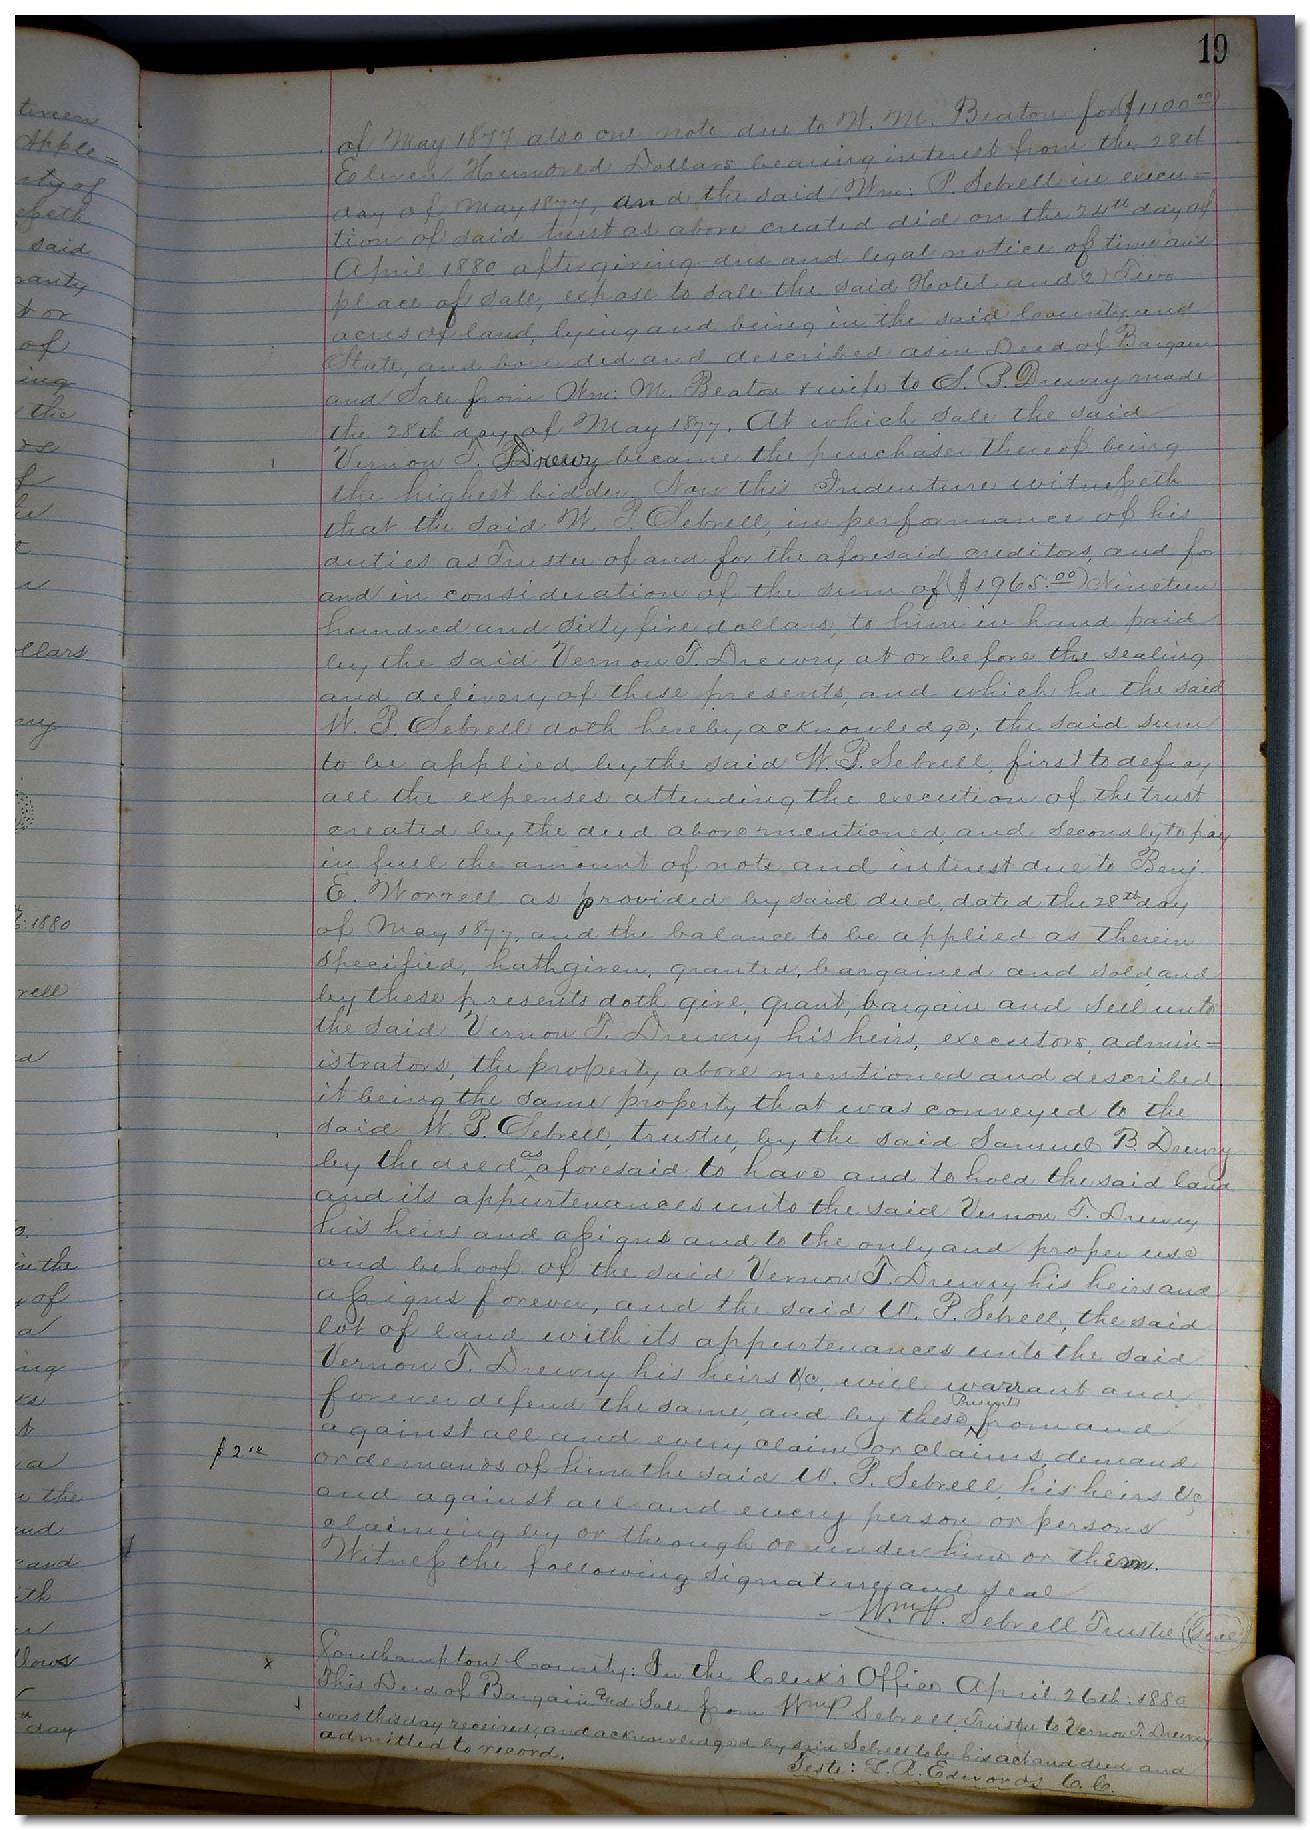 19
of May 1877 also one note due to W. M. Beaton for ($1100.00)
Eleven Hundred Dollars bearing interest from the 28th
day of May 1877, and the said Wm: P. Sebrell in execu=
tion of said trust as above created did on the 24th day of
April 1880 after giving due and legal notice of time and
place of sale, expose to sale the said Hotel and (2) Two
acres of land, lying and being in the said County and
State, and bounded and described as in Deed of Bargain
and Sale from Wm: M. Beaton & wife to S. B. Drewry made
the 28th day of May 1877. At which sale the said
Vernon T. Drewy became the purchaser thereof being
the highest bidder, Now this Indenture witnesseth
that the said W. P. Sebrell, in performance of his
duties as Trustee of and for the aforesaid creditors, and for
and in consideration of the sum of ($1965.00) Nineteen
hundred and sixty five dollars, to him in hand paid
by the said Vernon T. Drewry at or before the sealing
and delivery of these presents, and which he the said
W. P. Sebrell doth hereby acknowledge; the said sum
to be applied by the said W. P. Sebrell, first to defray
all the expenses attending the execution of the trust
created by the deed above mentioned, and secondly to pay
in full the amount of note and interest due to Benj.
E. Worrell as provided by said deed, dated the 28th day
of May 1877, and the balance to be applied as therein
specified, hath given, granted, bargained and sold and
by these presents doth give, grant, bargain and sell unto
the said Vernon T. Drewry his heirs, executors, admin=
istrators, the property above mentioned and described
it being the same property that was conveyed to the
said W. P. Sebrell, trustee, by the said Samuel B. Drewry
by the deed as aforesaid to have and to hold the said land
and its appurtenances unto the said Vernon T. Drewry
his heirs and assigns and to the only and proper use
and behoof of the said Vernon T. Drewry his heirs and
assigns forever, and the said W. P. Sebrell, the said
lot of land with its appurtenances unto the said
Vernon T. Drewry his heirs &c, will warrant and
forever defend the same, and by these Presents from and
against all and every claim or claims, demand
or demands of him the said W. P. Sebrell, his heirs &c,
and against all and every person or persons
claiming by or through or under him or them.
Witness the following signature and seal
Wm P. Sebrell Trustee (Seal)
Southampton County: In the Clerk's Office April 26th. 1880
This Deed of Bargain and Sale from Wm P Sebrell, Trustee to Vernon T. Drewry
was this day received, and acknowledged by said Sebrell to be his act and deed and
admitted to record.
Teste: L. R. Edwards C. C.